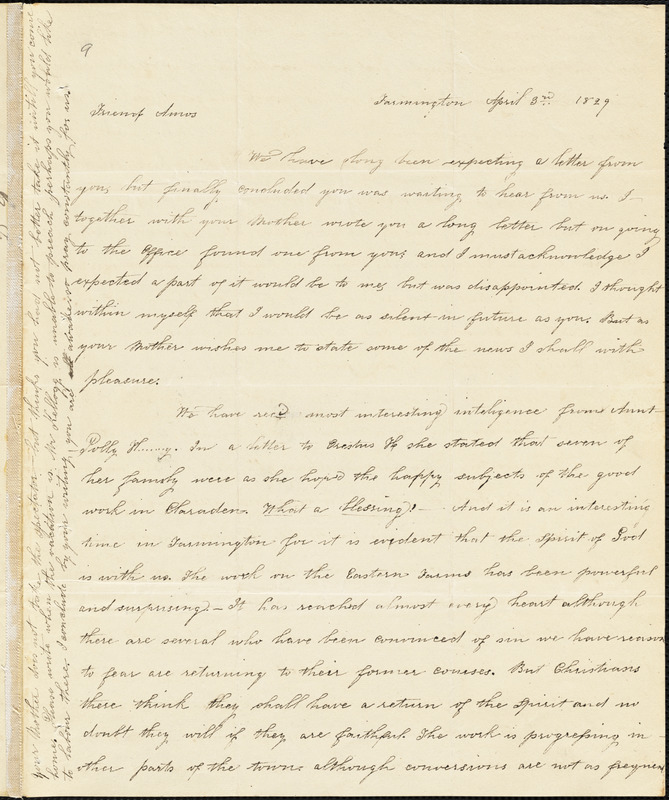 9
Farmington April 3rd 1829
Friend Amos
We have long been expecting a letter from
you, but finally concluded you was waiting to hear from us. I
together with your Mother wrote you a long letter but on going
to the Office found one from you; and I must acknowledge I
expected a part of it would be to me, but was disappointed. I thought
within myself that I would be as silent in future as you. But as
your Mother wishes me to state some of the news I shall with
pleasure.
We have recd most interesting inteligence from Aunt
Polly In a letter to Erastus H she stated that seven of
her family were as she hoped the happy subjects of the good
work in Claraden. What a blessing! - And it is an interesting
time in Farmington for it is evident that the Spirit of God
is with us. The work on the Eastern Farms has been powerful
and surprising - It has reached almost every heart although
there are several who have been convinced of sin we have reason
to fear are returning to their former courses. But Christians
there think they shall have a return of the Spirit and no
doubt they will if they are faithful. The work is progressing in
other parts of the town, although conversions are not as freqnen
your Mother did not take the but thinks you had not better take it until you come
home. Please write when the vacation is. Mr is unable to preach perhaps you would like
to labour there. I conclude by your writing you are all pray constantly for us.